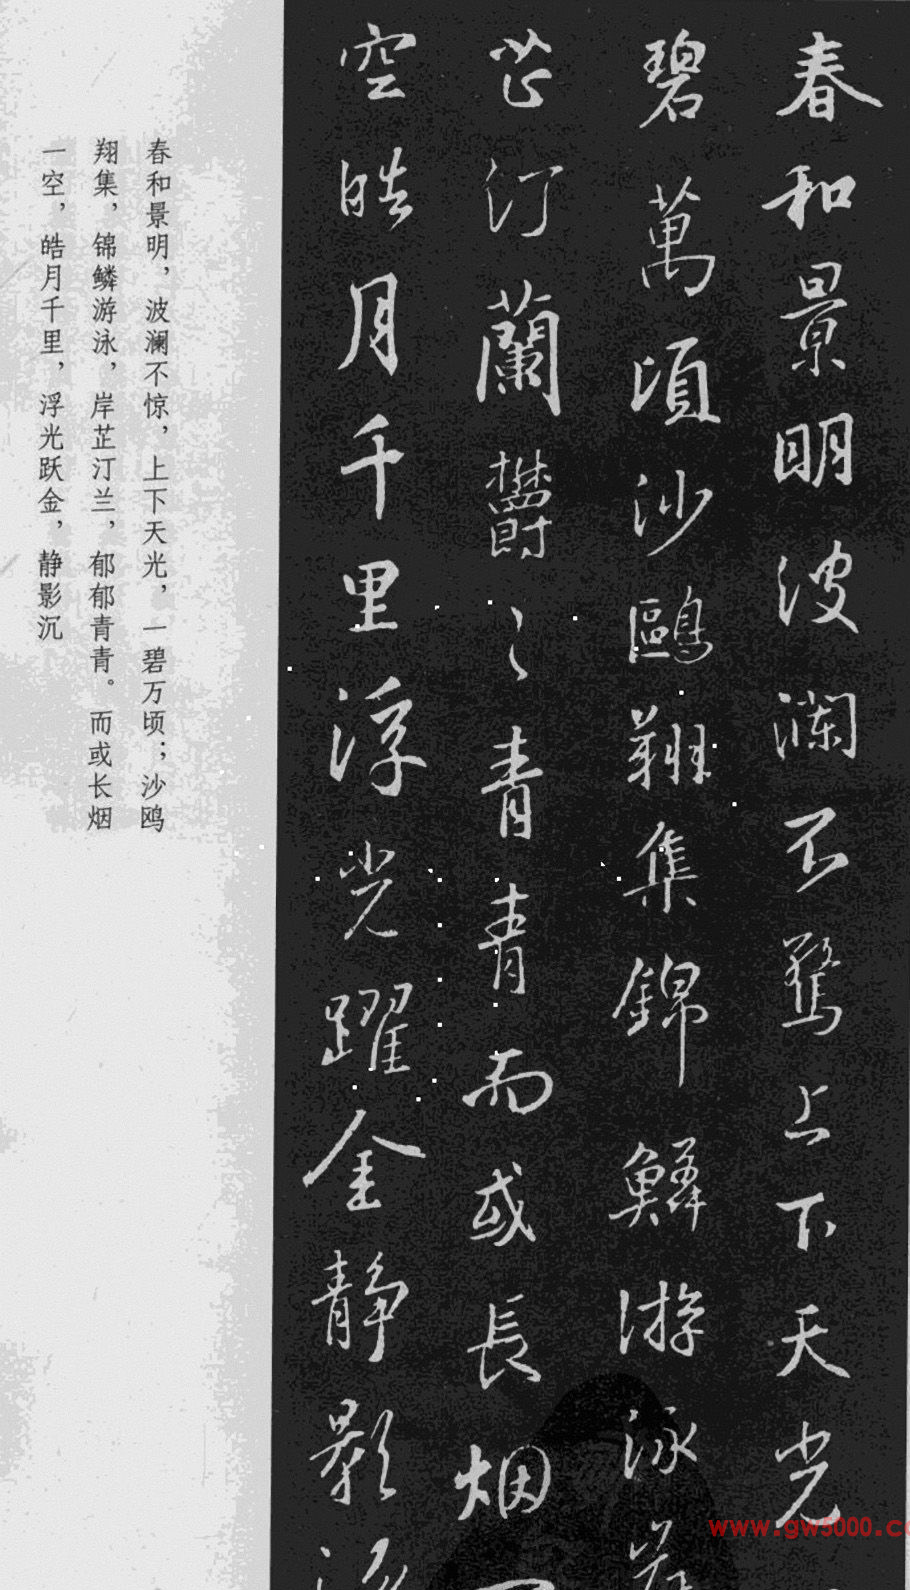 春和景明波瀾不驚上下天光
碧萬頃沙鷗翔集錦鱗游泳岸
芷汀蘭欝〻青青而或長烟一
空皓月千里浮光躍金静影沉
春和景明，波澜不惊，上下天光，一碧万顷；沙鸥
翔集，锦鳞游泳，岸芷汀兰，郁郁青青。而或长烟
一空，皓月千里，浮光跃金，静影沉
www.gw5000.co